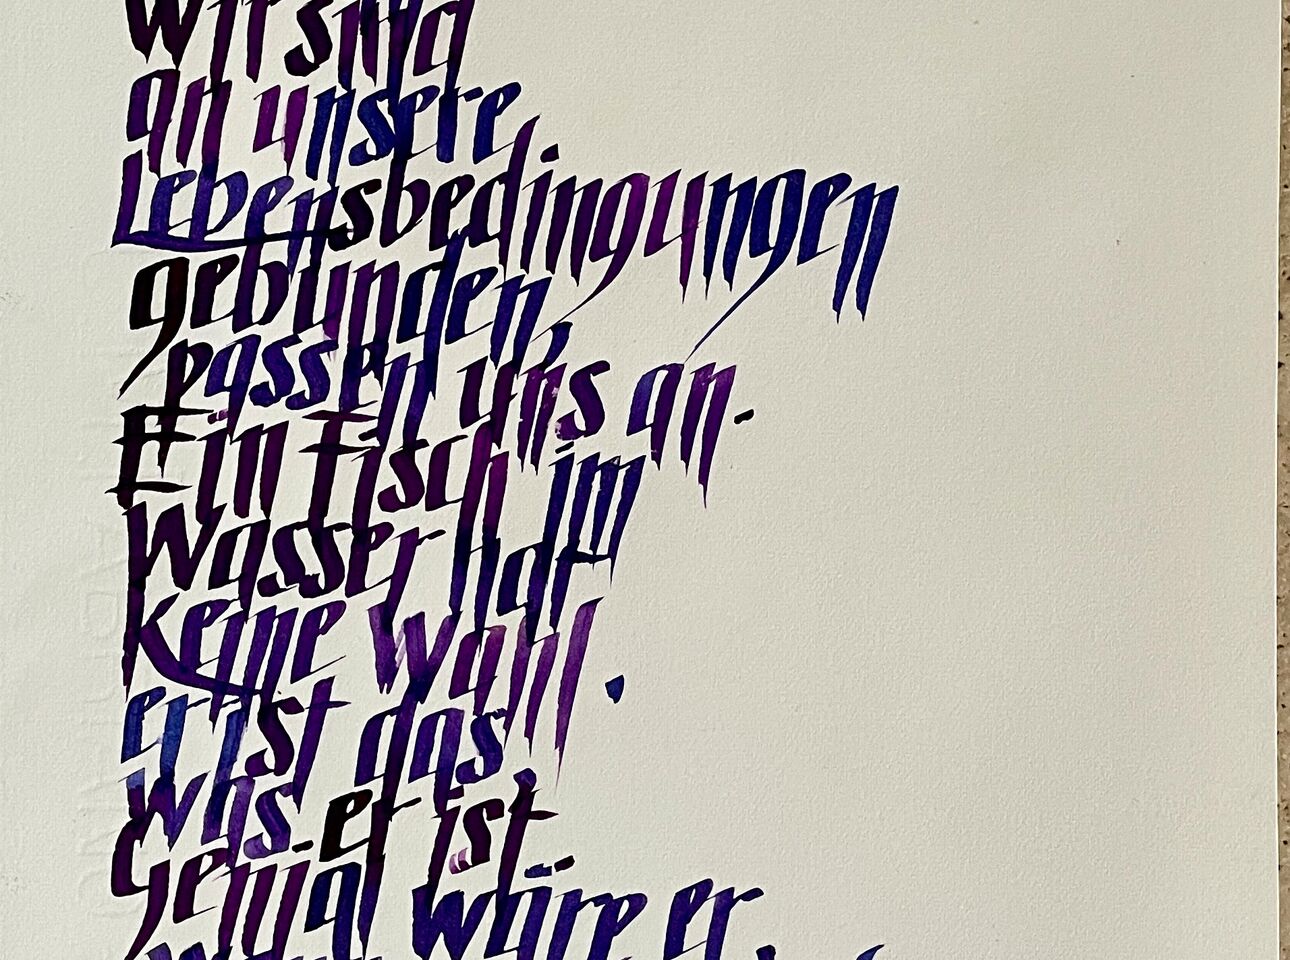 Wir sind
an unsere
Lebensbedingungen
gebunden,
passen uns an.
Ein Fisch im
Wasser hat
keine Wahl.
er ist das,
was er ist.
Genial wäre er